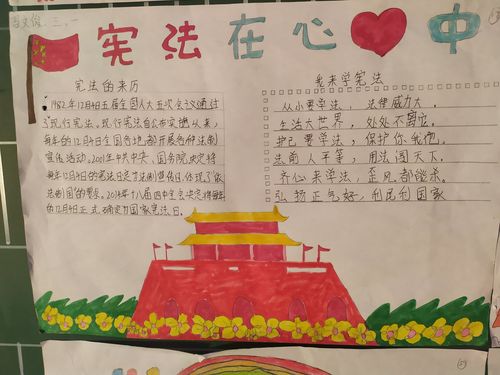 三、一
宪法在心中
宪法的来历
1982年12月4日五届全国人大五次会议通过
了现行宪法。现行宪法自公布实施以来,
每年的12月4日全国各地都开展各种法制
宣传活动。2001年中共中央、国务院决定将
每年12月4日的宪法日定为法制宣传日,体现了依
法制国的要求。2014年十八届四中全会决定将每年
的12月4日正式确定为国家宪法日。
我来学宪法
从小要学法,法律威力大。
生活大世界,处处不离它。
护己要学法,保护你我他。
法前人平等,用法闯天下。
齐心来学法,歪风都能杀。
弘扬正气好,利民利国家